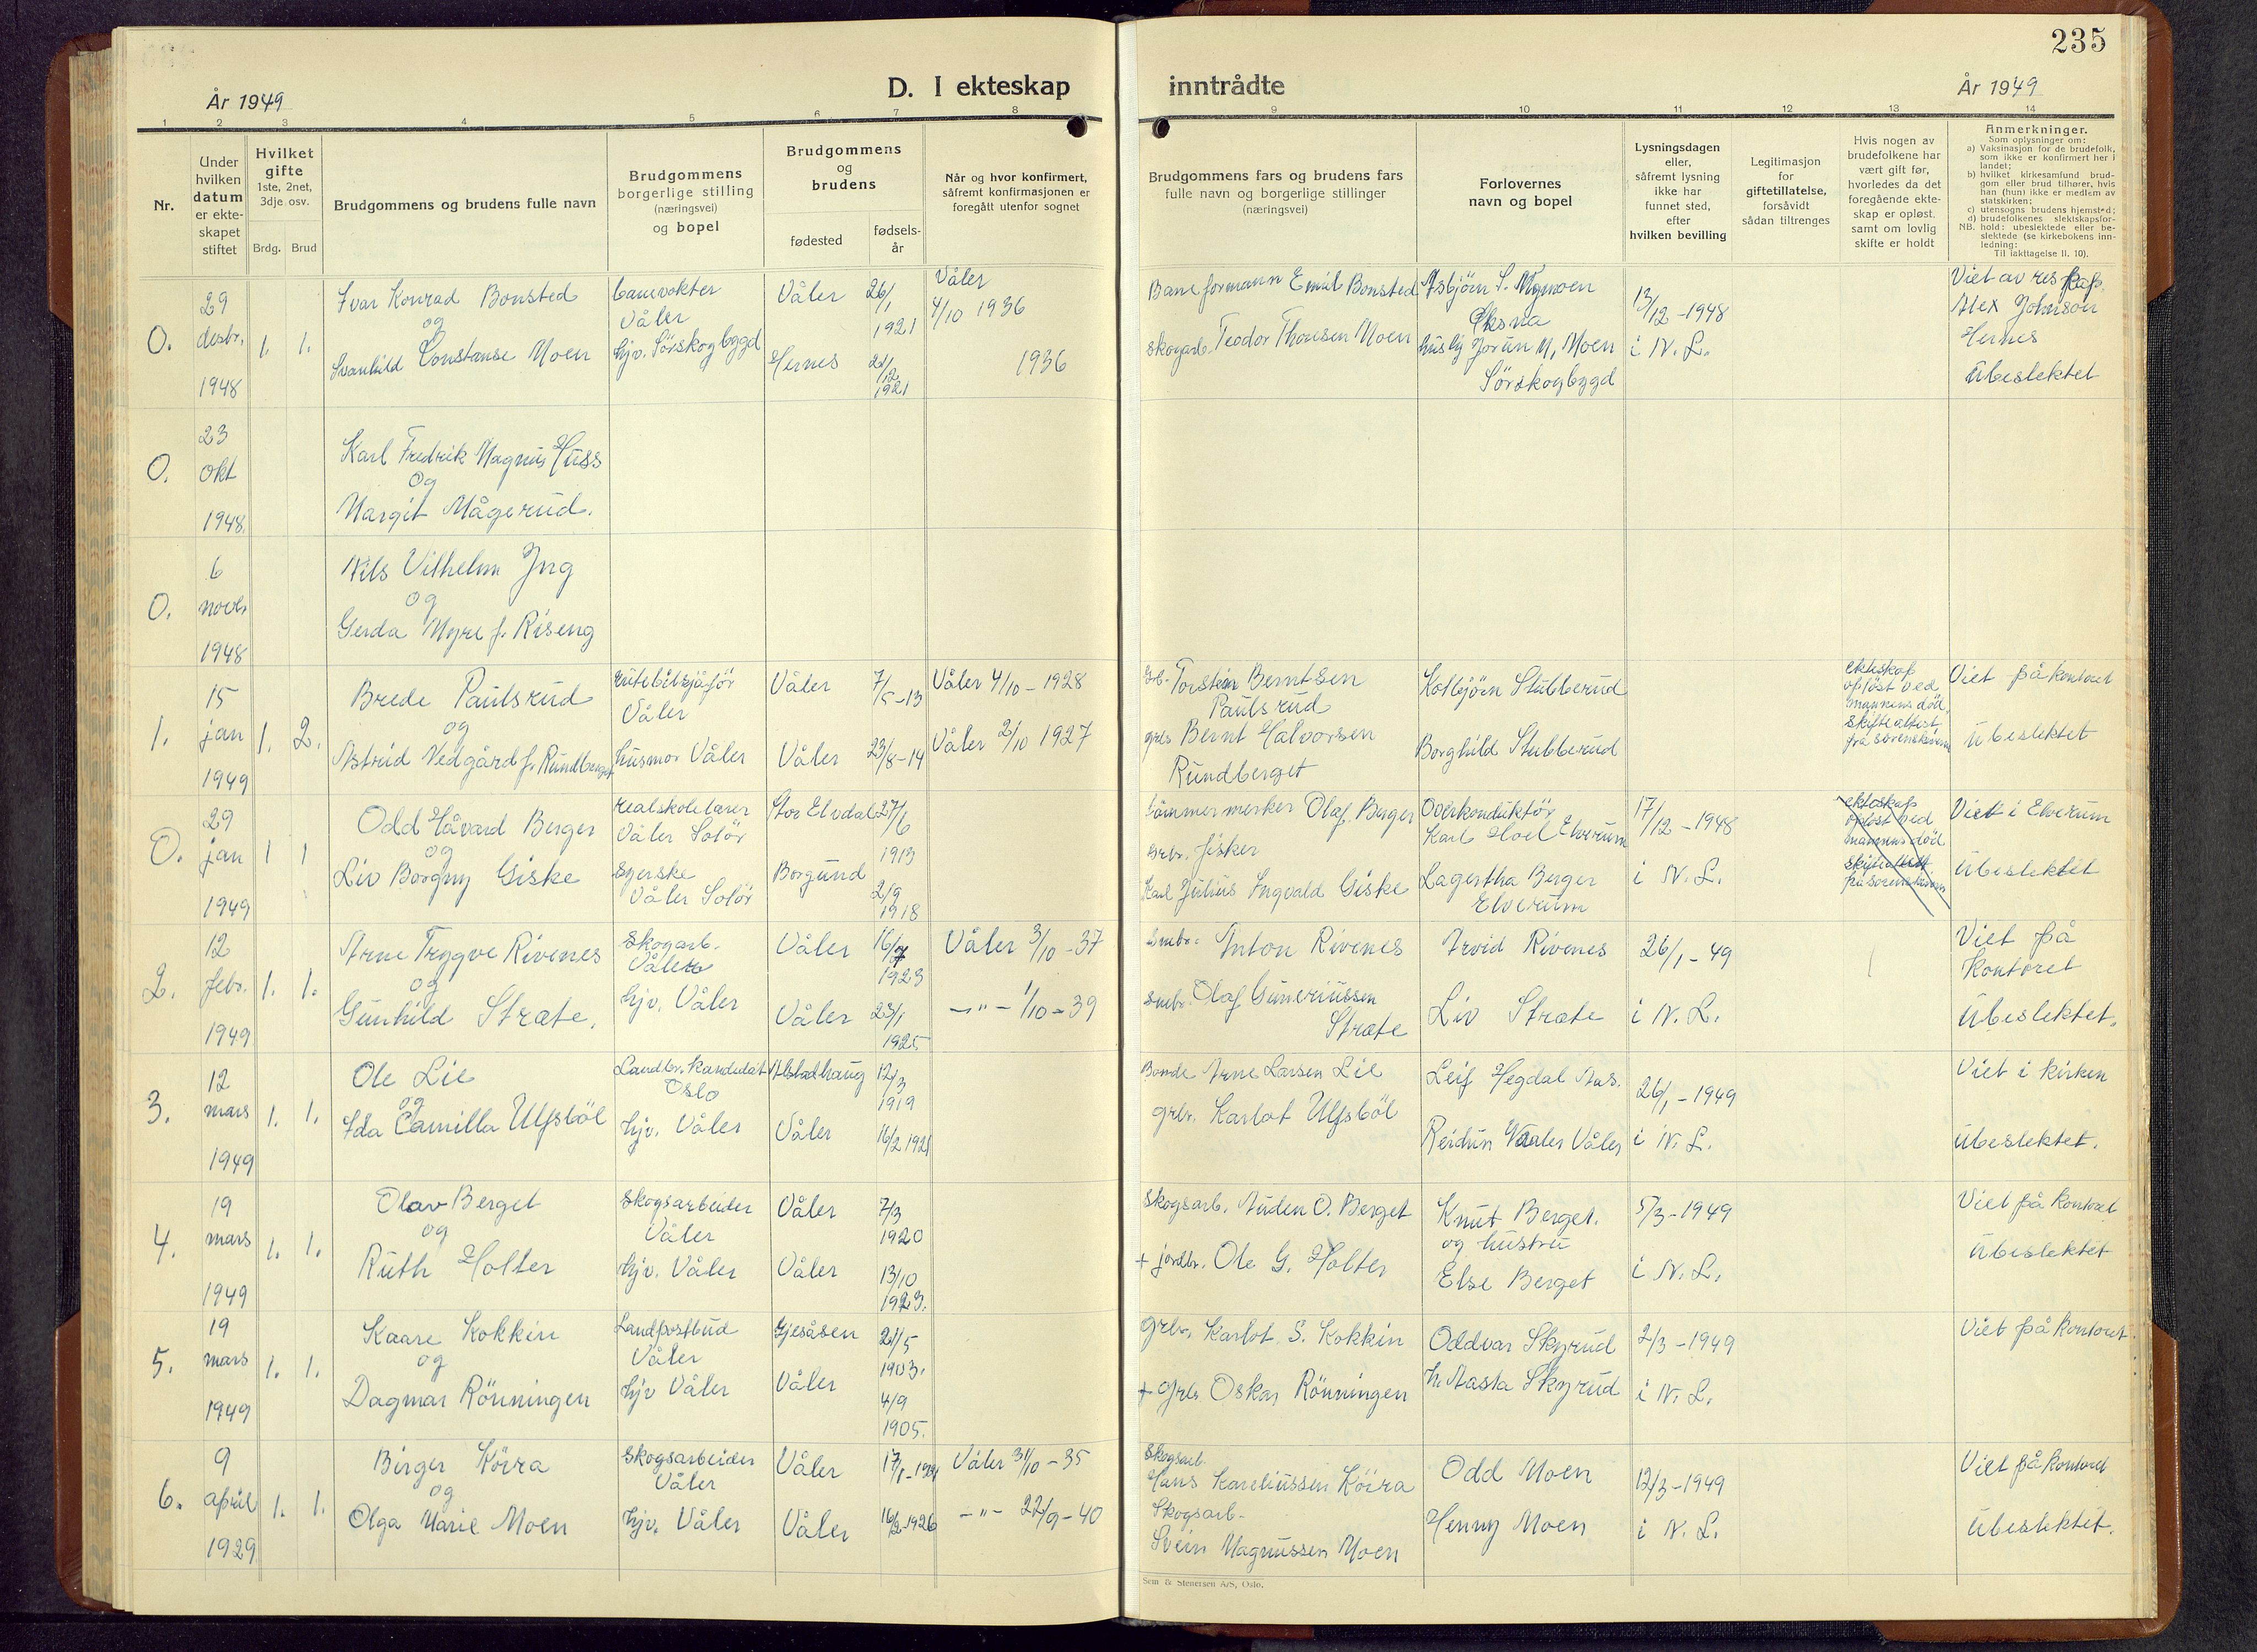 235
År 1949
D. I ekteskap
inntrådte
År 1949
1
2
3
4
5
6
7
8
9
10
11
12
13
14
Nr.
Under
hvilken
datum
er ekte-
skapet
stiftet
Hvilket
gifte
1ste, 2net,
3dje osv.
Brdg.
Brud
Brudgommens og brudens fulle navn
Brudgommens
borgerlige stilling
(næringsvei)
og bopel
Brudgommens
og
brudens
fødested
fødsels-
år
Når og hvor konfirmert,
såfremt konfirmasjonen er
foregått utenfor sognet
Brudgommens fars og brudens fars
fulle navn og borgerlige stillinger
(næringsvei)
Forlovernes
navn og bopel
Lysningsdagen
eller,
såfremt lysning
ikke har
funnet sted,
efter
hvilken bevilling
Legitimasjon
for
giftetillatelse,
forsåvidt
sådan tiltrenges
Hvis nogen av
brudefolkene har
vært gift før,
hvorledes da det
foregående ekte-
skap er opløst,
samt om lovlig
skifte er holdt
Anmerkninger.
Som oplysninger om:
a) Vaksinasjon for de brudefolk,
som ikke er konfirmert her i
landet;
b) hvilket kirkesamfund brud-
gom eller brud tilhører, hvis
han (hun) ikke er medlem av
statskirken;
c) utensogns brudens hjemsted;
d) brudefolkenes slektskapsfor-
NB. hold: ubeslektede eller be-
slektede (se kirkebokens inn-
ledning:
Til iakttagelse II. 10).
0.
29
desbr.
1948
1.
1.
Ivar Konrad Bonsted
og
Svanhild Constanse Moen
banevokter
Våler
hjv. Sörskogbygd
Våler
26/1
1921
Hernes
21/12
1921
Våler
4/10 1936
1936
Baneformann Emil Bonsted
skogarb. Teodor Thorsen Moen
Asbjörn S. Mymoen
Øksna
huslig Jorun M, Moen
Sörskogbygd
13/12 - 1948
i N. L.
Viet av res kap.
Alex Johnson
Hernes
Ubeslektet
0.
23
okt
1948.
Karl Fredrik Magnus Huss
Og
Margit Mågerud.
0.
6
novbr
1948
Nils Vilhelm Jng
og
Gerda Myre f. Riseng
1.
15
jan
1949
1.
2.
Brede Paulsrud
og
Astrid Vedgård f. Rundberget
rutebilsjåför
Våler
husmor Våler
Våler
7/5-13
Våler
23/8-14
Våler 4/10 - 1928
Våler 2/10 1927
Torstein Berntsen
Paulsrud
Bernt Halvorsen
Rundberget
Kolbjörn Stubberud
Borghild Stubberud
ekteskap
opløst ved
mannens död.
skifteattest
fra sorenskriveren
Viet på kontoret
Ubeslektet
0.
29
jan
1949
1
1
Odd Håvard Berger
og
Liv Borgny Giske
realskolelærer
Våler Solör
syerske
Våler Solör
Stor Elvdal
27/6
1913
Borgund
2/9
1918
tömmermerker Olaf Berger
fisker
Karl Julius Ingvald Giske
Overkonduktör
Karl Hoel Elverum
Lagertha Berger
Elverum
17/12 - 1948
i N. L.
ekteskap
opløst ved
mannens död
skifteattest
fra sorenskriveren
Viet i Elverum
Ubeslektet
2.
12
febr.
1949
1.
1.
Arne Trygve Rivenes
og
Gunhild Stræte.
skogarb.
Våler
hjv. Våler
Våler
16/7
1923
Våler
23/1
1925
Våler 3/10 - 37
- " - 1/10 - 39
Anton Rivenes
Olaf Guneriussen
Stræte
Arvid Rivenes
Liv Stræte
26/1 - 49
i N. L.
Viet på
Kontoret
Ubeslektet.
3.
12
mars
1949
1.
1.
Ole Lie
og
Ida Camilla Ulfsböl
Landbr. kandidat
Oslo
hjv. Våler
Alstadhaug
12/3
1919
Våler
16/2 1921
Bonde Arne Larsen Lie
grbr. Karlot Ulfsböl
Leif Hegdal Aas.
Reidun Vaaler Våler
26/1 - 1949
i N. L.
Viet i kirken
Ubeslektet.
4.
19
mars
1949
1.
1.
Olav Berget
og
Ruth Holter
skogsarbeider
Våler
hjv. Våler
Våler
7/3
1920
Våler
13/10
1923.
skogsarb. Auden O. Berget
+ jordbr. Ole G. Holter
Knut Berget.
og hustru
Else Berget
5/3 - 1949
i N. L.
Viet på kontoret
Ubeslektet
5.
19
mars
1949
1.
1.
Kaare Kokkin
og
Dagmar Rönningen
Landpostbud
Våler
hjv Våler
Gjesåsen
21/5
1903.
Våler
4/9
1905.
grbr. Karlot. S. Kokkin
+ grbr Oskar Rönningen
Oddvar Skyrud
h. Aasta Skyrud
2/3 - 1949
i N. L.
Viet på kontoret.
6.
9
april
1929
1.
1.
Birger Köira
og
Olga Marie Moen
skogsarbeider
Våler
hjv. Våler
Våler
Våler
16/2-1926
Våler 31/10 - 35
- " - 22/9 - 40
Skogsarb.
Hans Kareliussen Köira
Skogsarb.
Svein Magnussen Moen
Odd Moen
Henny Moen
12/3 - 1949
i N. L.
Viet på kontoret
Ubeslektet.
Sem & Stenersen A/S, Oslo.